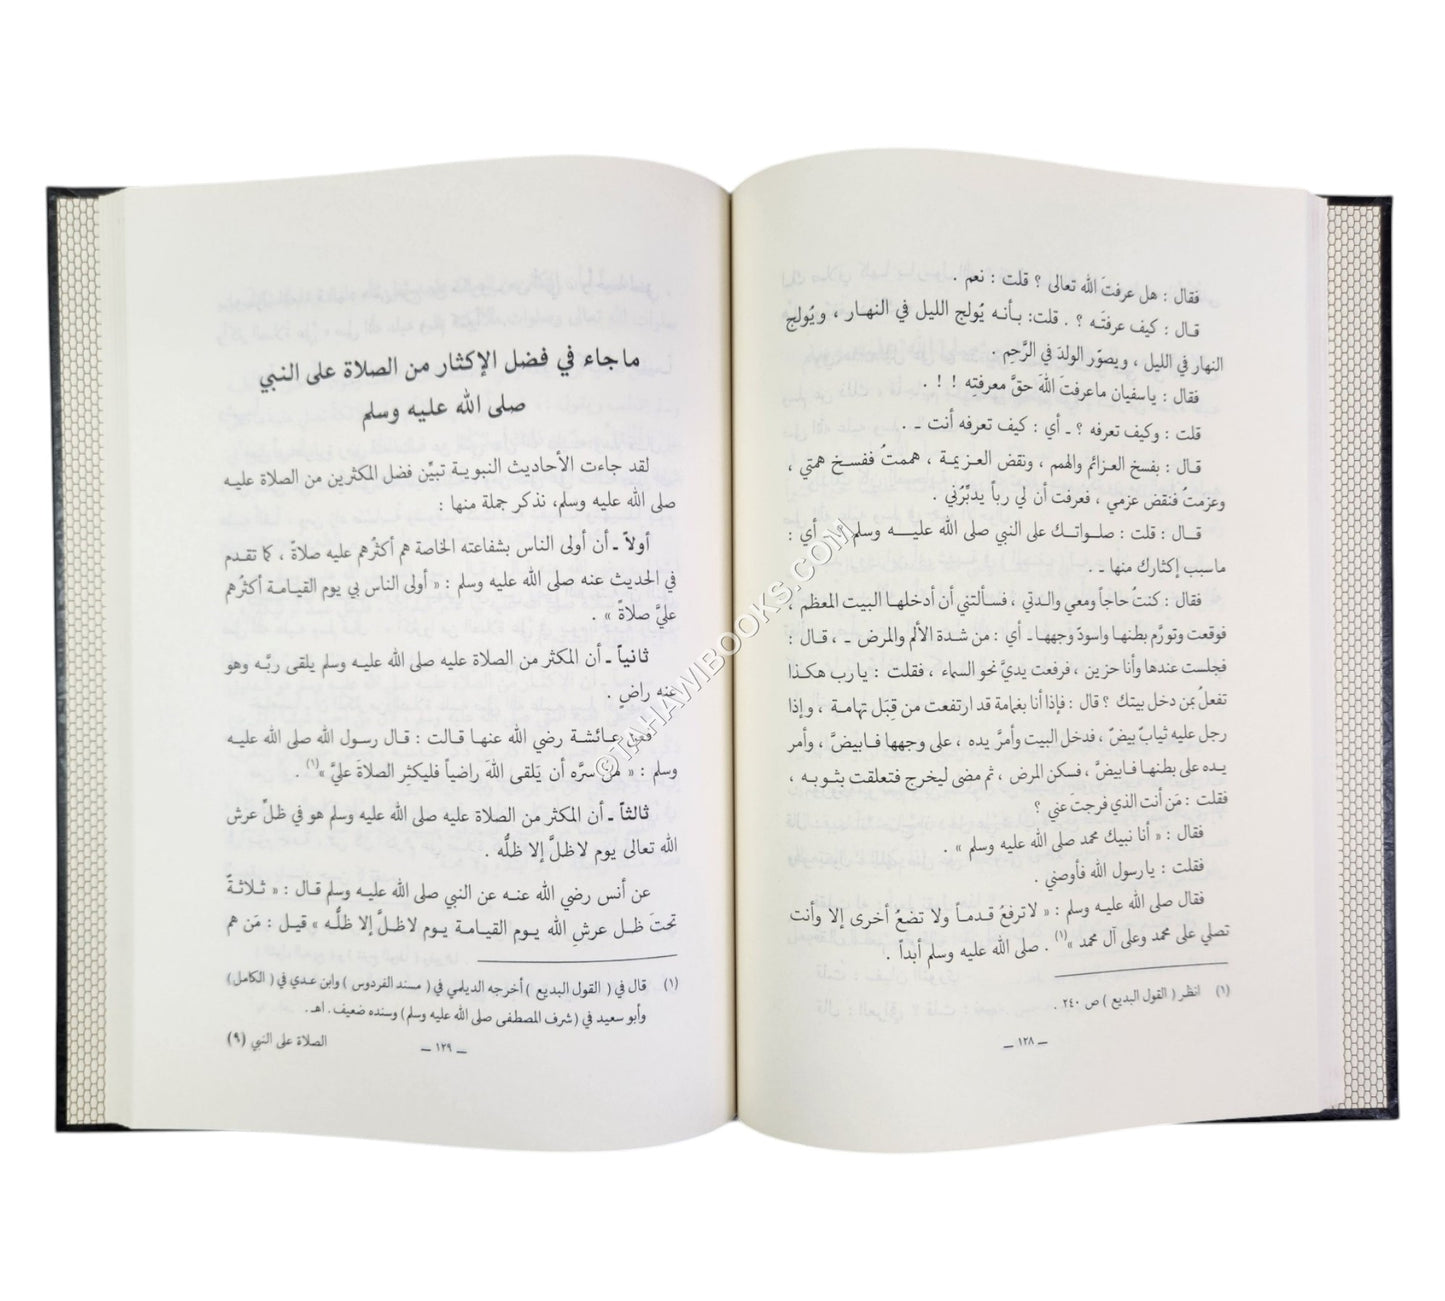 فقال : هل عرفتَ الله تعالى ؟ قلت : نعم .
قـال : كيف عرفتَـه ؟ . قلت: بـأنـه يُولج الليل في النهـار ، ويُولج
النهار في الليل ، ويصوّر الولدَ في الرَّحِم .
فقال : ياسفيان ماعرفتَ اللهَ حقَّ معرفتِه ! ! .
قلت : وكيف تعرفه ؟ ـ أي : كيف تعرفه أنت ـ .
قـال : بفسخ العـزائم والهمم ، ونقض العـزيمـة ، هممتُ ففسـخ همتي ،
وعزمتُ فنقض عزمي ، فعرفت أن لي رباً يدبِّرُني .
قـال : قلت : صلـواتـك على النبي صلى الله عليـه وسلم ؟ ـ أي :
ماسبب إكثارك منها ـ .
فقال : كنتُ حاجاً ومعي والدتي ، فسـألتني أن أدخلهـا البيت المعظم ،
فوقعت وتورَّم بطنهـا واسودّ وجهها ـ أي : من شدة الألم والمرض ـ ، قـال :
فجلست عندها وأنا حزين ، فرفعت يديَّ نحو السماء ، فقلت : يارب هكـذا
تفعلُ بمن دخل بيتك ؟ قال : فإذا أنا بغمامة قد ارتفعت من قِبَل تهامـة ، وإذا
رجل عليه ثيابٌ بيضٌ ، فدخل البيت وأمرَّ يده ، على وجهها فـابيضَّ ، وأمر
يده على بطنهـا فـابيضَّ ، فسكن المرض ، ثم مضى ليخرج فتعلقت بثـوبـه ،
فقلت : مَن أنت الذي فرجتَ عني ؟
فقال : « أنا نبيك محمد صلى الله عليه وسلم » .
فقلت : يارسول الله فأوصني .
فقال صلى الله عليـه وسلم : « لاترفعُ قـدمـاً ولا تضعُ أخرى إلا وأنت
تصلي على محمد وعلى آل محمد »(١) . صلى الله عليه وسلم أبداً .
(١) انظر ( القول البديع ) ص ٢٤٠ .
ـ ١٢٨ ـ
ماجاء في فضل الإكثار من الصلاة على النبي
صلى الله عليه وسلم
لقد جاءت الأحاديث النبويـة تبيِّن فضل المكثرين من الصلاة عليـه
صلى الله عليه وسلم، نذكر جملة منها :
أولاً ـ أن أولى الناس بشفاعته الخاصة هم أكثرُهم عليه صلاةً ، كما تقـدم
في الحديث عنه صلى الله عليه وسلم : « أولى الناس بي يوم القيامـة أكثرُهم
عليَّ صلاةً » .
ثانياً ـ أن المكثر من الصلاة عليه صلى الله عليـه وسلم يلقى ربَّـه وهو
عنه راضٍ .
فعن عـائشـة رضي الله عنهـا قـالت : قـال رسول الله صلى الله عليـه
وسلم : « مَن سرَّه أن يَلقى اللهَ راضياً فليكثِر الصلاةَ عليَّ »(١) .
ثالثاً ـ أن المكثر من الصلاة عليه صلى الله عليـه وسلم هو في ظلِّ عرش
الله تعالى يوم لاظلَّ إلا ظلُّه .
عن أنس رضي الله عنـه عن النبي صلى الله عليـه وسلم قـال : « ثـلاثـةٌ
تحتَ ظـل عرشِ الله يـوم القيـامـة يـوم لاظلَّ إلا ظلُّـه » قيـل : مَن هم
(١) قال في ( القول البديع ) أخرجه الديلمي في ( مسند الفردوس ) وابن عـدي في ( الكامل )
وأبو سعيد في ( شرف المصطفى صلى الله عليه وسلم ) وسنده ضعيف . اهـ .
ـ ١٢٩ ـ
الصلاة على النبي (٩)
©TAHAWIBOOKS.COM